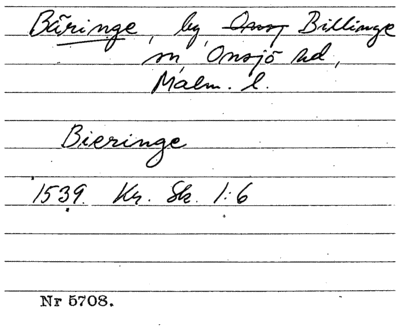 Bäringe, by, Onsj Billinge
sn, Onsjö hd,
Malm. l.
Bieringe
1539. Kr. Sk. 1:6
Nr 5708.